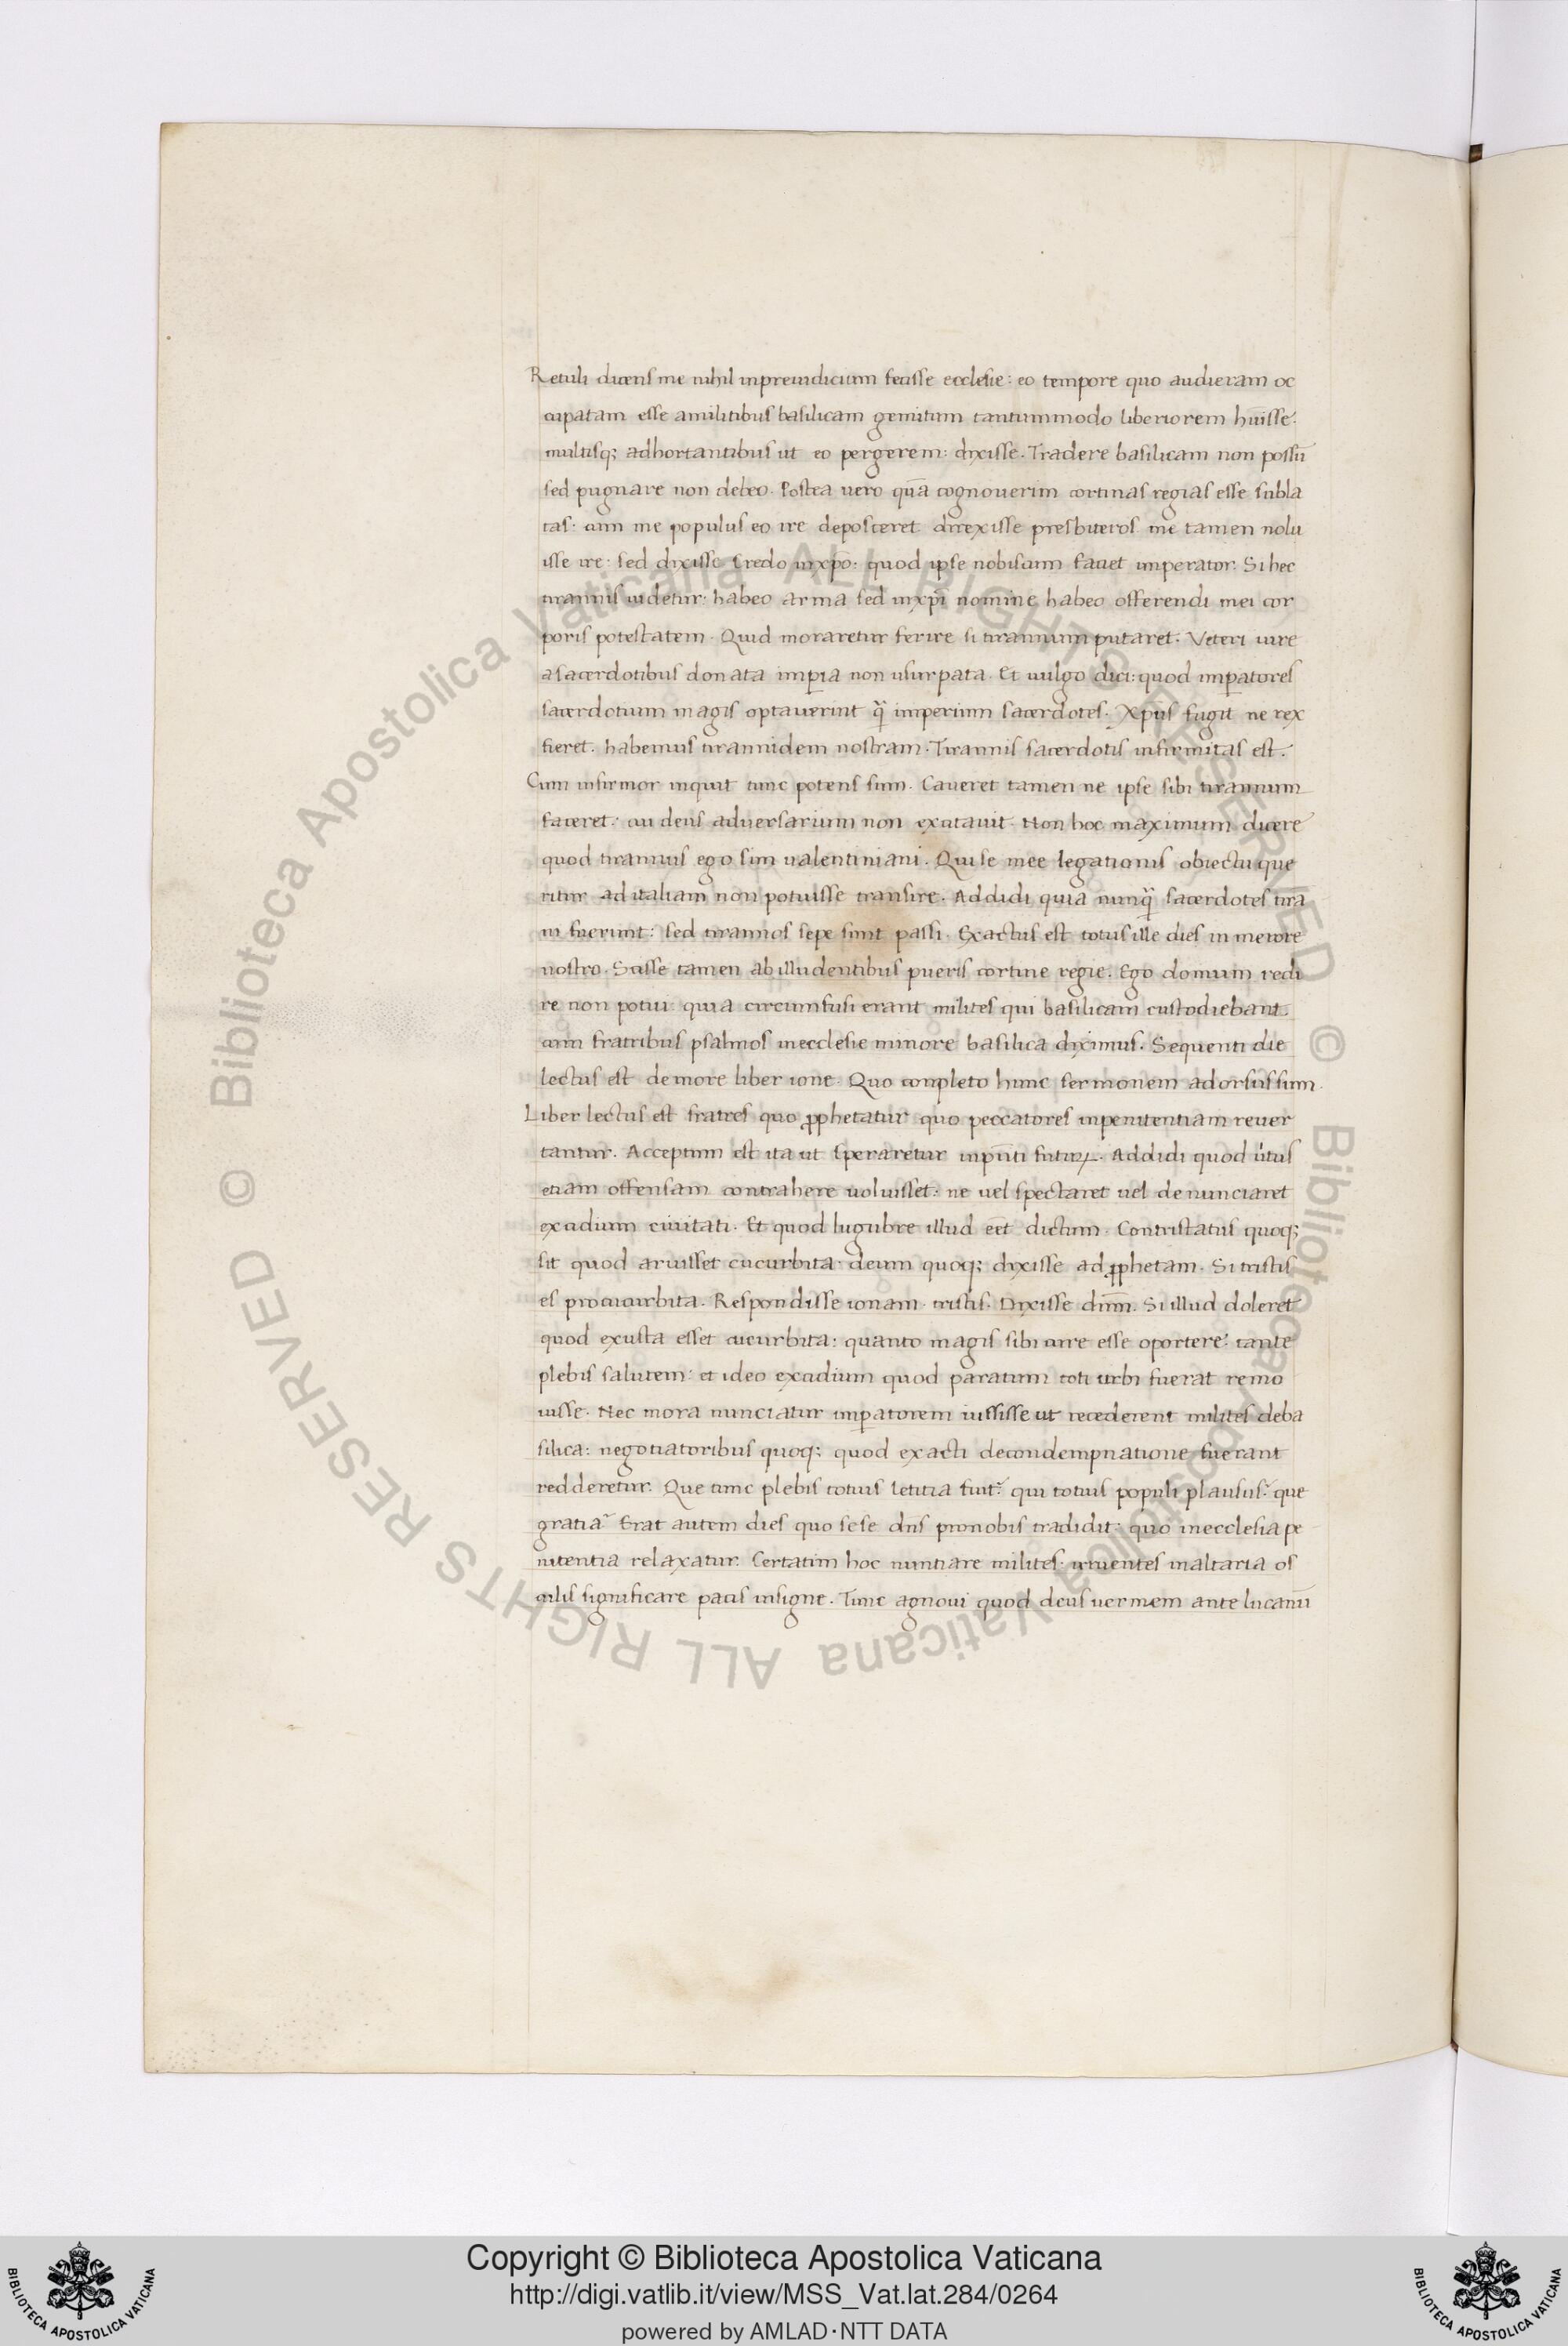 Retuli dicens me nihil inpreiudicium fecisse ecclesie: eo tempore quo audieram oc
cupatam esse amilitibus basilicam gemitum tantummodo liberiorem hūisse.
multisq; adhortantibus ut eo pergerem: dixisse. Tradere basilicam non possū
sed pugnare non debeo. Postea uero quā cognouerim cortinas regias esse subla
tas: cum me populus eo ire deposceret direxisse presbiteros me tamen nolu
isse ire: sed dixisse. Credo inxpō: quod ipse nobiscum fauet imperator. Si hec
tirannis uidetur: habeo arma sed inxpī nomine habeo offerendi mei cor
poris potestatem. Quid moraretur ferire si tirannum putaret. Veteri iure
asacerdotibus donata imꝑia non usurpata. Et uulgo dici: quod imꝑatores
sacerdotium magis optauerint q̄ imperium sacerdotes. Xpūs fugit ne rex
fieret. habemus tirannidem nostram. Tirannis sacerdotis infirmitas est.
Cum infirmor inquit tunc potens sum. Caueret tamen ne ipse sibi tirannum
faceret: cui deus aduersarium non excitauit. Non hoc maximum dicere
quod tirannus ego sim ualentiniani. Qui se mee legationis obiectu que
ritur ad italiam non potuisse transire. Addidi quia nunq̄ sacerdotes tira
ni fuerunt: sed tirannos sepe sunt passi. Exactus est totus ille dies in merore
nostro. Scisse tamen ab illudentibus pueris cortine regie. Ego domum redi
re non potui: quia circumfusi erant milites qui basilicam custodiebant.
cum fratribus psalmos inecclesie minore basilica diximus. Sequenti die
lectus est de more liber ione. Quo completo hunc sermonem adorsus sum.
Liber lectus est fratres quo ꝓphetatur quo peccatores inpenitentiam reuer
tantur. Acceptum est ita ut speraretur inpn̄ti futuꝝ. Addidi quod iustus
etiam offensam contrahere uoluisset: ne uel spectaret uel denunciaret
excidium ciuitati. Et quod lugubre illud eēt dictum. Contristatus quoq;
sit quod aruisset cucurbita deum quoq; dixisse ad ꝓphetam. Si tristis
es procucurbita. Respondisse ionam tristis. Dixisse dūm. Si illud doleret
quod exusta esset cucurbita: quanto magis sibi cure esse oportere: tante
plebis salutem: et ideo excidium quod paratum toti urbi fuerat remo
uisse. Nec mora nunciatur imꝑatorem iussisse ut recederent milites deba
silica: negotiatoribus quoq; quod exacti decondempnatione fuerant
redderetur. Que tunc plebis totius letitia fuit? qui totius populi plausus? que
gratia? Erat autem dies quo sese dn̄s pronobis tradidit: quo inecclesia pe
nitentia relaxatur. Certatim hoc nuntiare milites irruentes inaltaria os
culis significare pacis insigne. Tunc agnoui quod deus uermem ante lucanū
© Biblioteca Apostolica Vaticana ALL RIGHTS RESERVED © Biblioteca Apostolica Vaticana ALL RIGHTS RESERVED
Copyright © Biblioteca Apostolica Vaticana
http://digi.vatlib.it/view/MSS_Vat.lat.284/0264
powered by AMLAD·NTT DATA
BIBLIOTECA APOSTOLICA VATICANA
BIBLIOTECA APOSTOLICA VATICANA